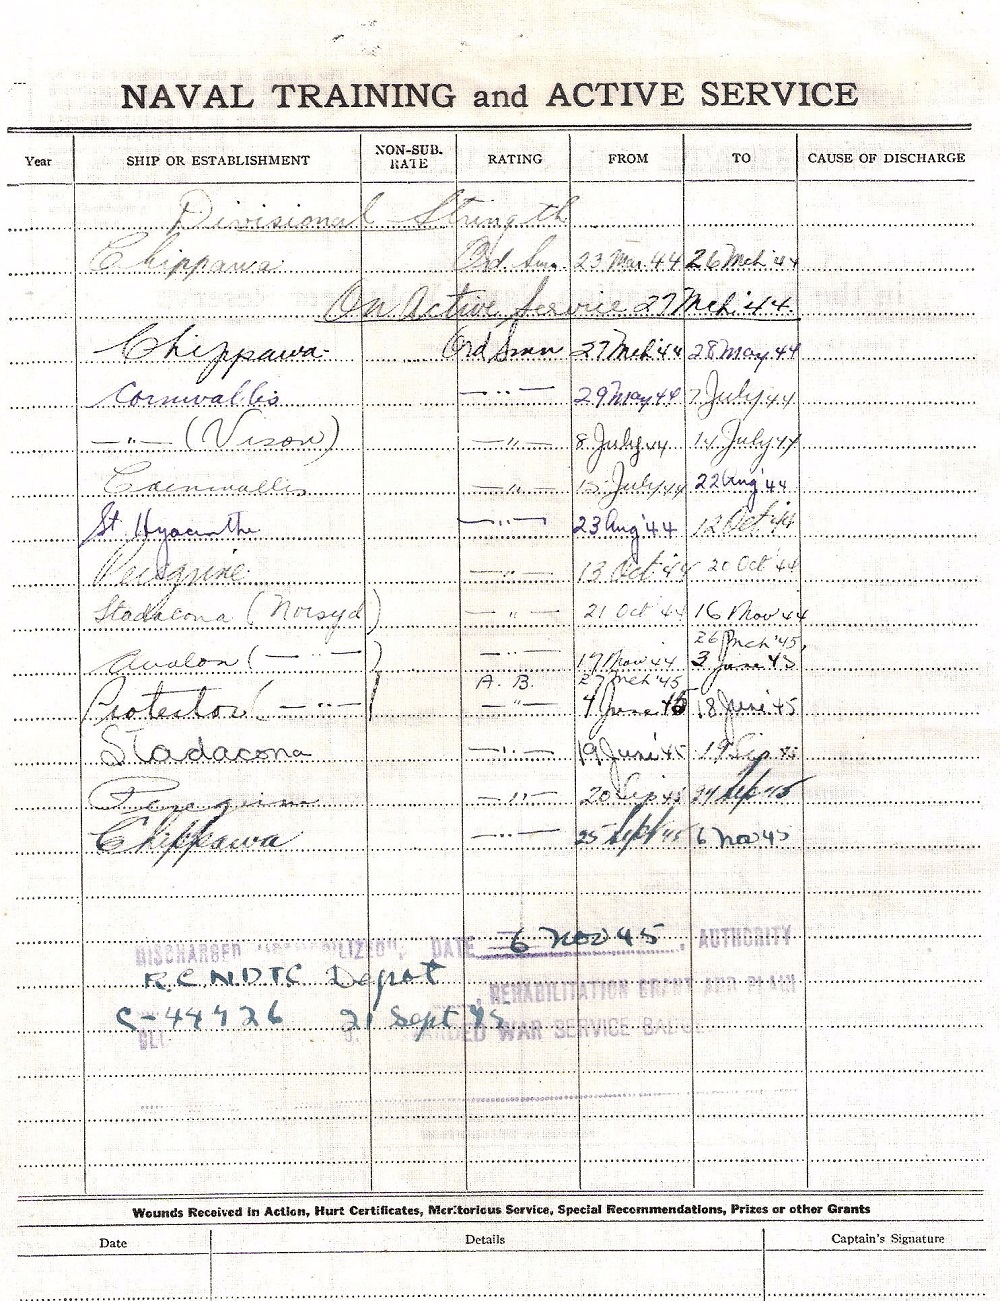 NAVAL TRAINING and ACTIVE SERVICE
Year SHIP OR ESTABLISHMENT NON-SUB. RATE RATING FROM TO CAUSE OF DISCHARGE
Divisional Strength
Chippawa Ord Smn 23 Mar 44 26 Mch '44
On Active Service 27 Mch '44.
Chippawa Ord Smn 27 Mch '44 28 May 44
Cornwallis —"— 29 May 44 7 July 44
—"— (Vison) —"— 8 July 44 14 July 44
Cornwallis —"— 15 July 44 22 Aug '44
St. Hyacinthe —"— 23 Aug '44 12 Oct '44
Peregrine —"— 13 Oct '44 20 Oct '44
Stadacona (Norsyd) —"— 21 Oct '44 16 Nov 44
26 Mch '45,
Avalon (—"—) —"— 17 Nov 44 3 June 45
A. B. 27 Mch '45
Protector (—"—) —"— 4 June 45 18 June 45
Stadacona —"— 19 June 45 19 Sep 45
Peregrine —"— 20 Sep 45 24 Sept 45
Chippawa —"— 25 Sept 45 6 Nov 45
DISCHARGED DATE 6 Nov 45, AUTHORITY
R.C.N.D.T.C Depot
, REHABILITATION GRANT AND
C-44926 21 Sept 45
WAR SERVICE BADGE
Wounds Received in Action, Hurt Certificates, Meritorious Service, Special Recommendations, Prizes or other Grants
Date Details Captain's Signature